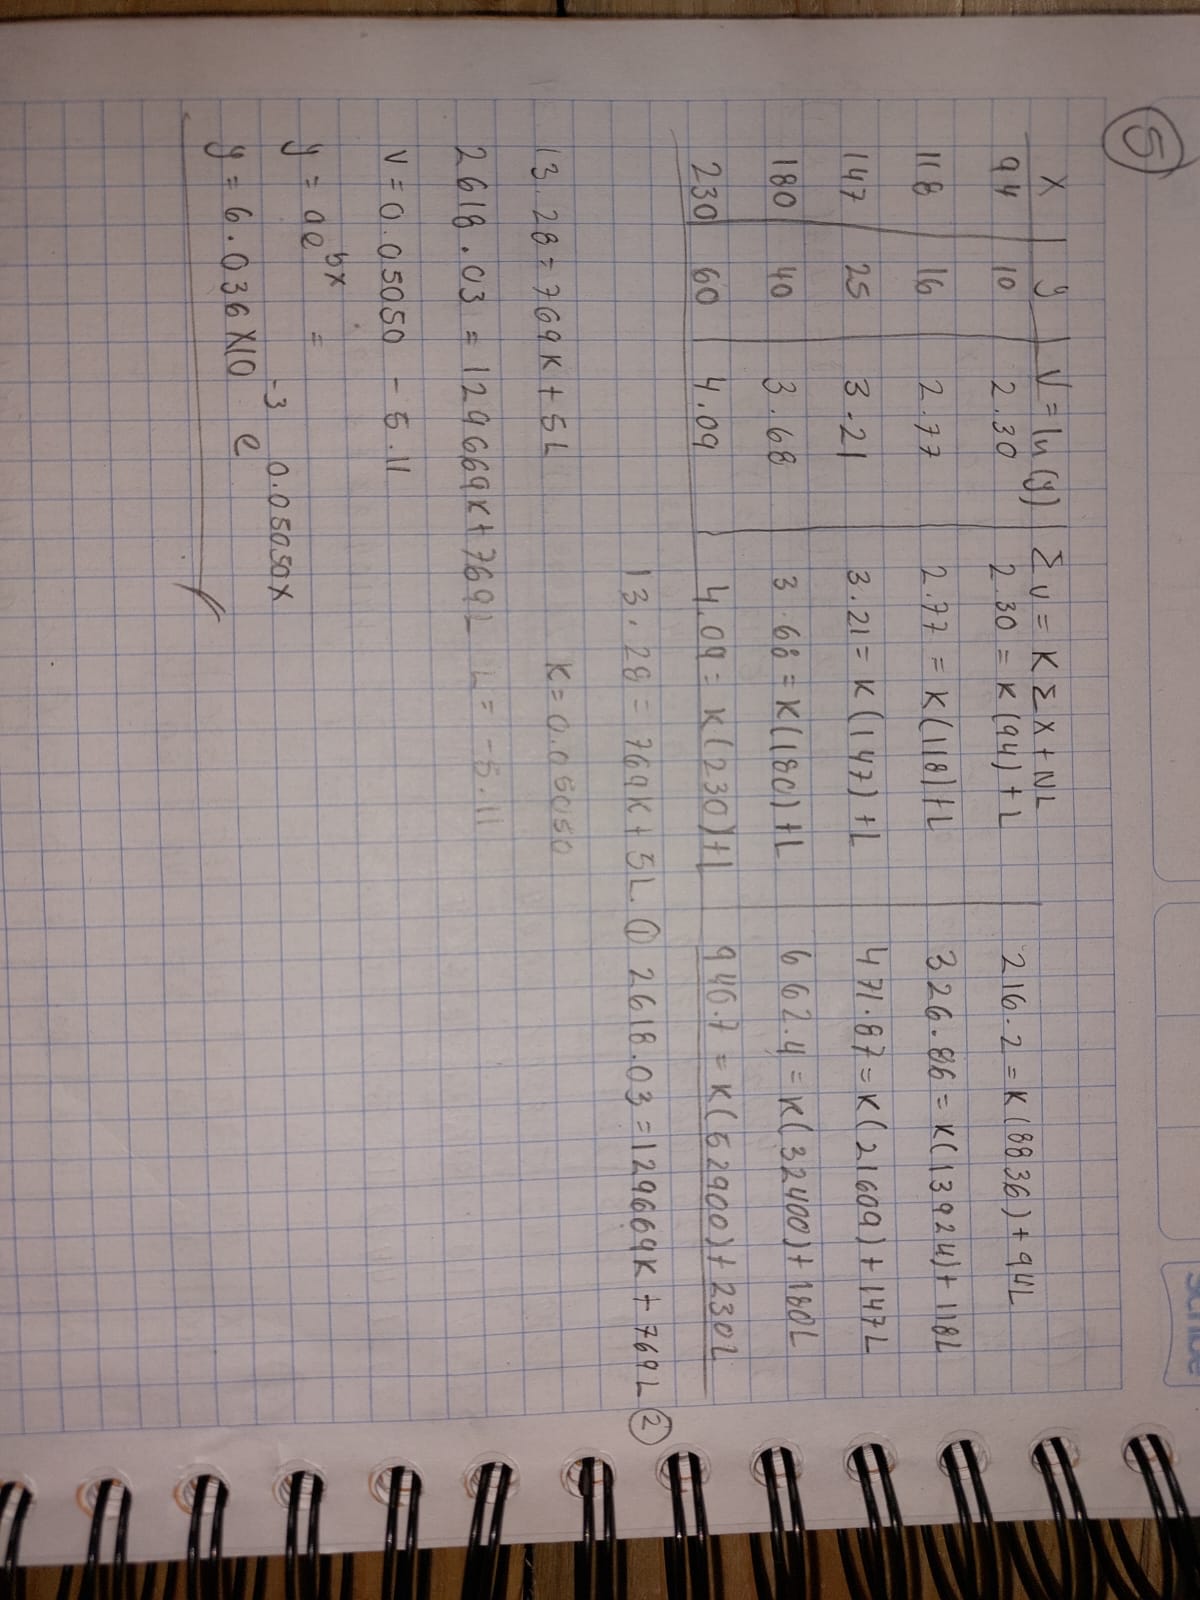 5
X | y | V=ln(y) | Σv = KΣx+NL
94 10 2.30 2.30 = K(94)+L 216.2 = K(8836)+94L
118 16 2.77 2.77 = K(118)+L 326.86 = K(13924)+118L
147 25 3.21 3.21 = K(147)+L 471.87 = K(21609)+147L
180 40 3.68 3.68 = K(180)+L 662.4 = K(32400)+180L
230 60 4.09 4.09 = K(230)+L 940.7 = K(52900)+230L
13.28 = 769K+5L. ① 2618.03 = 129669K+769L ②
13.28 = 769K+5L K=0.05050
2618.03 = 129669K+769L L=-5.11
V=0.05050 - 5.11
y = ae^bx =
y = 6.036X10^-3 e^0.05050x